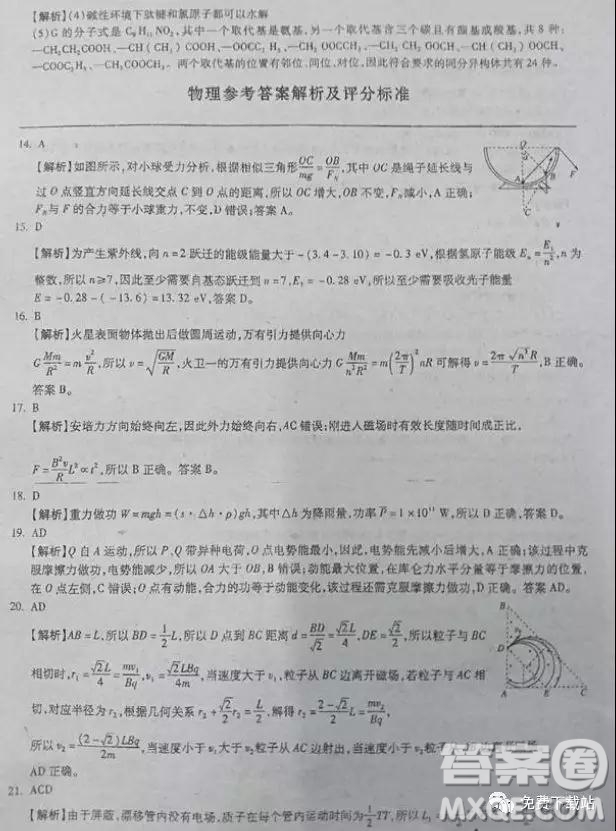 【解析】(4)碱性环境下肽键和氯原子都可以水解
(5)G的分子式是C₉H₁₁NO₂,其中一个取代基是氨基,另一个取代基含三个碳且有酯基或羧基,共8种:
—CH₂CH₂COOH、—CH(CH₃)COOH、
两个取代基的位置有邻位、间位、对位,因此符合要求的同分异构体共有24种。
物理参考答案解析及评分标准
14. A
【解析】如图所示,对小球受力分析,根据相似三角形OC/mg=OB/F_N,其中OC是绳子延长线与
过O点竖直方向延长线交点C到O点的距离,所以OC增大,OB不变,F_N减小,A正确;
F_N与F的合力等于小球重力,不变,D错误;答案A。
15. D
【解析】为产生紫外线,向n=2跃迁的能级能量大于-(3.4-3.10)=-0.3 eV,根据氢原子能级E_n=E₁/n²,n为
整数,所以n≥7,因此至少需要自基态跃迁到n=7,E₇=-0.28 eV,所以至少需要吸收光子能量
E=-0.28-(-13.6)=13.32 eV,答案D。
16. B
【解析】火星表面物体抛出后做圆周运动,万有引力提供向心力
G Mm/R²=m v²/R,所以v=√(GM/R),火卫一的万有引力提供向心力G Mm/(n²R²)=m(2π/T)² nR可解得v=2π√(n³)R/T,B正确。
答案B。
17. B
【解析】安培力方向始终向左,因此外力始终向右,AC错误;刚进入磁场时有效长度随时间成正比,
F=B²v/R L²∝t²,所以B正确。答案B。
18. D
【解析】重力做功W=mgh=(s·Δh·ρ)gh,其中Δh为降雨量,功率P̄=1×10¹¹ W,所以D正确,答案D。
19. AD
【解析】Q自A运动,所以P、Q带异种电荷,O点电势能最小,因此,电势能先减小后增大,A正确;该过程中克
服摩擦力做功,电势能减少,所以OA大于OB,B错误;动能最大位置,在库仑力水平分量等于摩擦力的位置,
在O点左侧,C错误;O点有动能,合力的功等于动能变化,该过程还需克服摩擦力做功,D正确。答案AD。
20. AD
【解析】AB=L,所以BD=1/2 L,所以D点到BC距离d=BD/√2=√2L/4,DE=√2/2,所以粒子与BC
相切时,r₁=√2L/4=mv₁/Bq,v₁=√2LBq/4m,当速度大于v₁,粒子从BC边离开磁场,若粒子与AC相
切,对应半径为r₂,根据几何关系r₂+√2/2 r₂=L/2,解得r₂=(2-√2)/2 L=mv₂/Bq,
所以v₂=(2-√2)LBq/2m,当速度小于v₂大于v₁粒子从AC边射出,当速度小于
AD正确。
21. ACD
【解析】由于屏蔽,漂移管内没有电场,质子在每个管内运动时间为1/2 T
答案圈
MXQE.COM
免费下载站